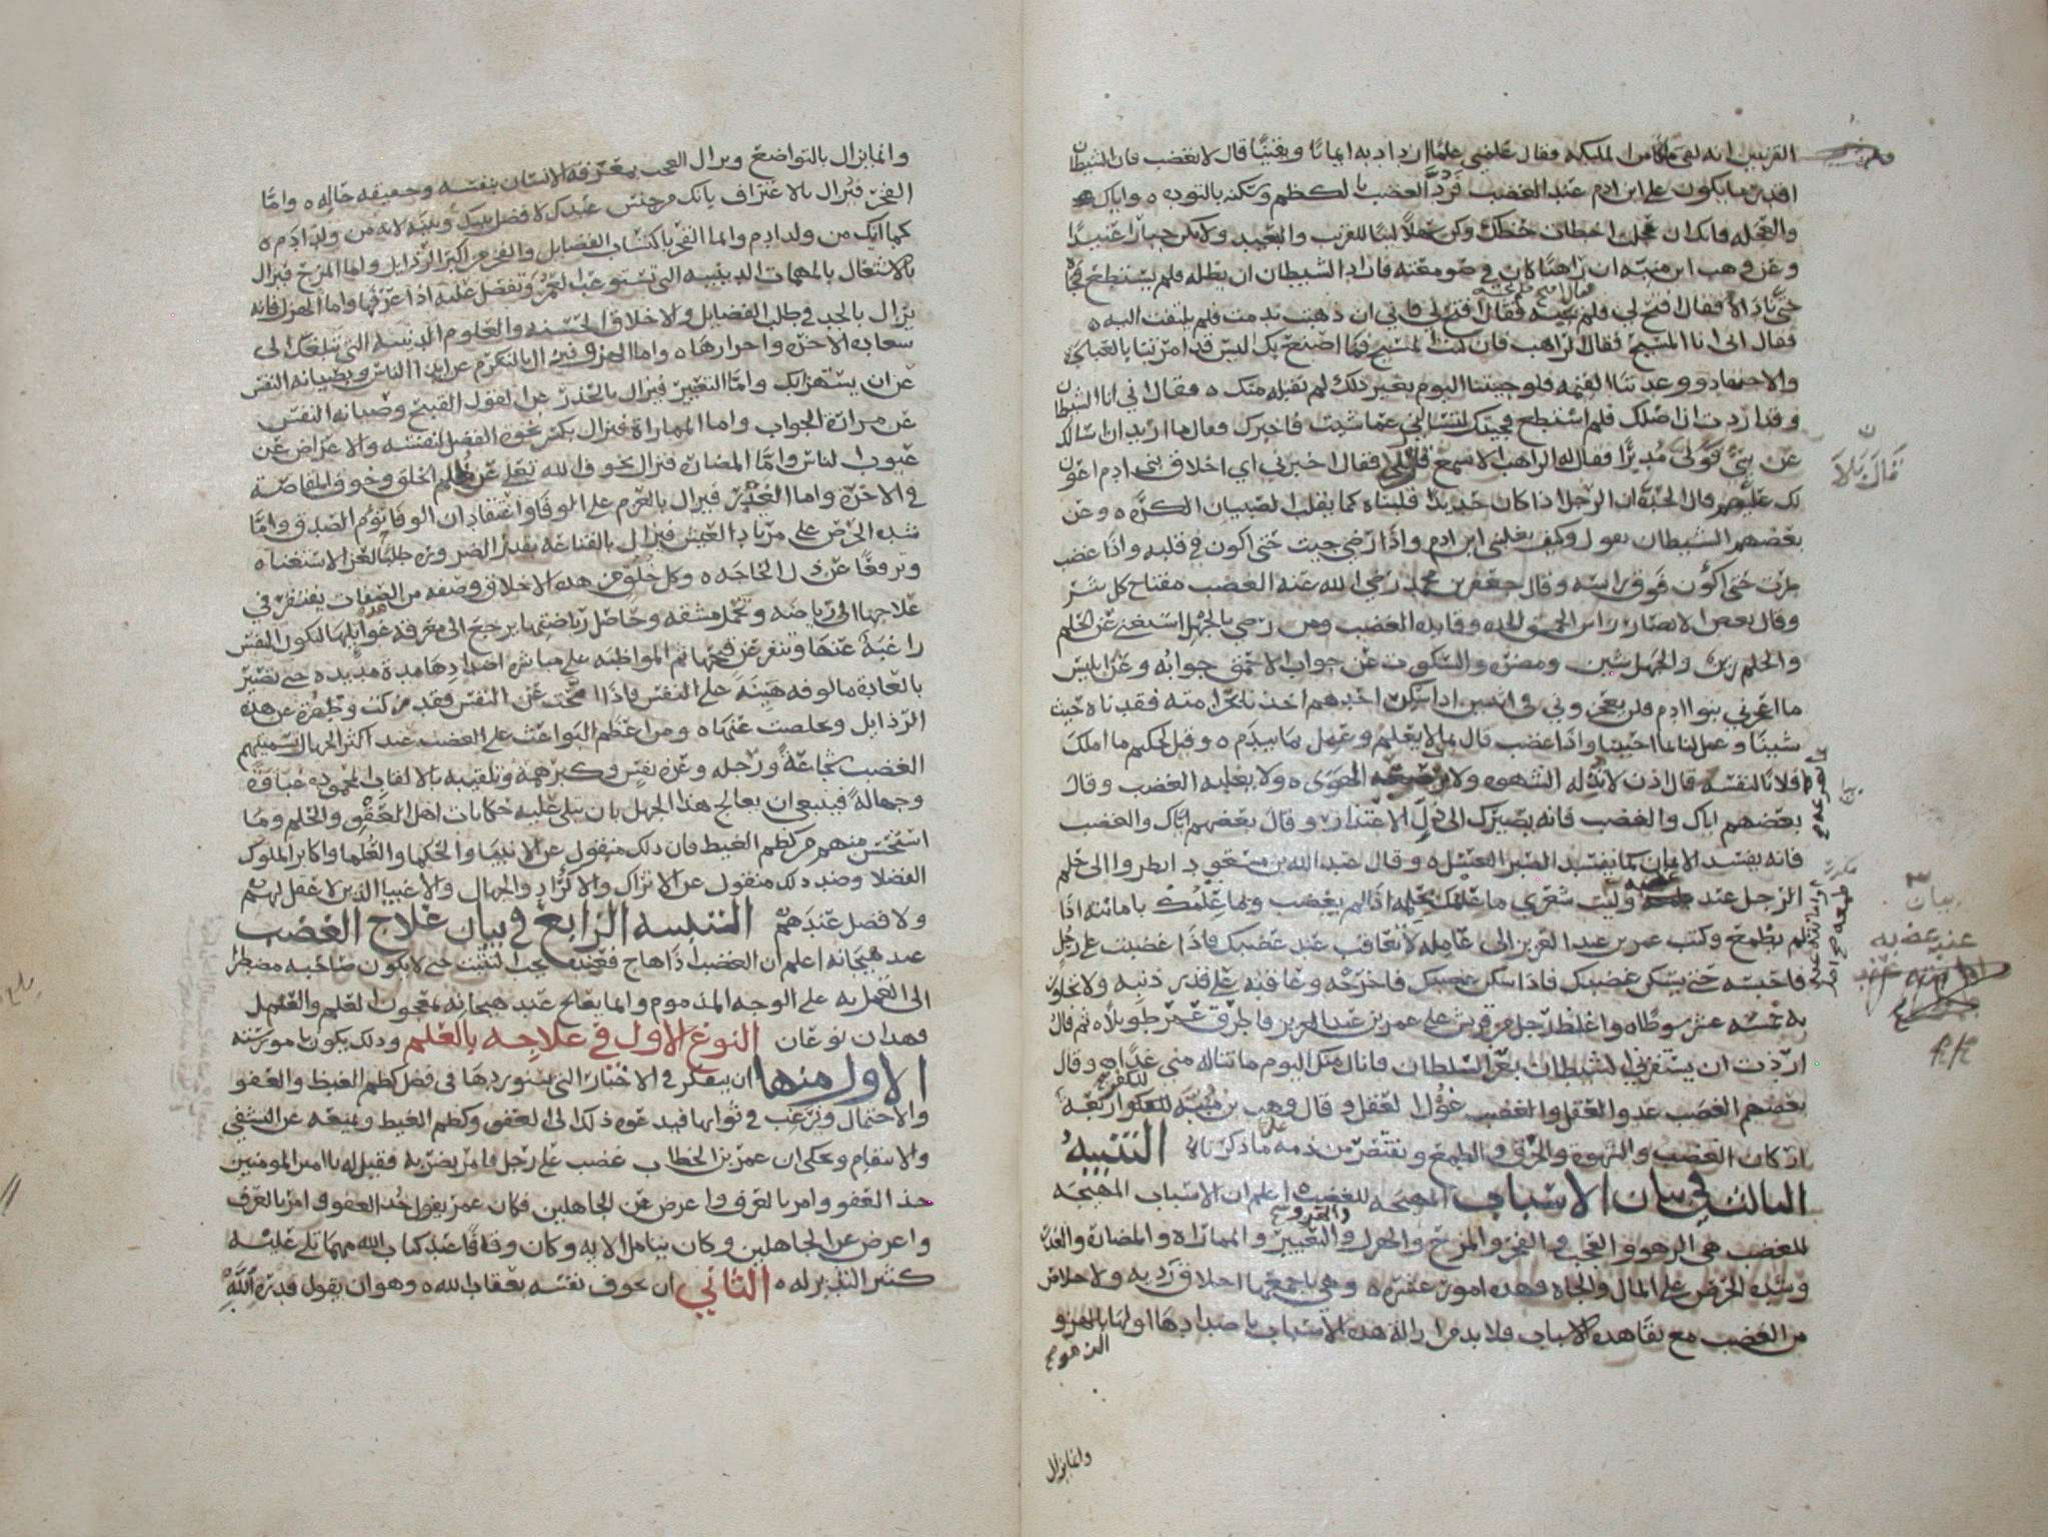 القرنين انه لقي ملكا من الملىكه فقال علمني علما ازداد به ايمانا ويقينا قال لا تغضب فان الشيطان
اقدر ما يكون على ابن ادم عند الغضب فرد الغضب بالكظم وسكنه بالتوده واياك
والعجله فانك ان عجلت اخطات حظك وكن سهلا لينا للقريب والبعيد ولا تكن جبارا عنيدا
وعن وهب ابن منبه ان راهبا كان في صومعته فاراد الشيطان ان يظله فلم يستطع فجاه
حتى ناداه فقال افتح لي فلم يجبه فقال افتح لي فاني ان ذهبت ندمت فلم يلتفت اليه
فقال اني انا المسيح فقال الراهب فان كنت المسيح فما اصنع بك اليس قد امرتنا بالعباده
والاجتهاد ووعدتنا القيمه فلو جيتنا اليوم بغير ذلك لم نقبله منك فقال اني انا الشيطان
وقد اردت ان اضلك فلم استطع فجيتك لتسالني عما شيت فاخبرك فقال ما اريد ان اسالك
عن شي فولى مدبرا فقال له الراهب الا تسمع قال بلى فقال اخبرني اي اخلاق بني ادم اعون
لك عليهم قال الحدة ان الرجل اذا كان حديدا قلبناه كما يقلب الصبيان الكره وعن
بعضهم الشيطان يقول وكيف يغلبني ابن ادم واذا رضي جيت حتى اكون في قلبه واذا غضب
طرت حتى اكون فوق راسه وقال جعفر بن محمد رضي الله عنه الغضب مفتاح كل شر
وقال بعض الانصار راس الحمق الحده وقايده الغضب ومن رضي بالجهل استغنى عن الحلم
والحلم زين والجهل شين ومضره والسكوت عن جواب الاحمق جوابه وعن ابليس
ما اعجزني بنوا ادم فلن يعجزوني في اثنتين اذا سكر احدهم اخذنا بخزامته فقدناه حيث
شينا وعمل لنا بما احببنا واذا غضب قال بما لا يعلم وعمل بما يندم وقيل لحكيم ما املك
فلانا لنفسه قال اذن لا تذله الشهوه ولا يصرعه الهوى ولا يغلبه الغضب وقال
بعضهم اياك والغضب فانه يصيرك الى ذل الاعتذار وقال بعضهم اياك والغضب
فانه يفسد الايمان كما يفسد الصبر العسل وقال عبد الله بن مسعود انظروا الى حلم
الرجل عند غضبه وليت شعري ما علمك بحلمه اذا لم يغضب وما علمك بامانته اذا
لم يطمع وكتب عمر بن عبد العزيز الى عامله لا تعاقب عند غضبك فاذا غضبت على رجل
فاحبسه حتى يسكن غضبك فاذا سكن غضبك فاخرجه وعاقبه على قدر ذنبه ولا تجاوز
به خمسه عشر سوطا واغلظ رجل من قريش على عمر بن عبد العزيز فاطرق عمر طويلا ثم قال
اردت ان يستفزني الشيطان بعز السلطان فانال منك اليوم ما تناله مني غدا وقال
بعضهم الغضب عدو العقل والغضب غول العقل وقال وهب بن منبه للكفر اركان اربعه
اركان الغضب والشهوة والخرق والطمع ونقتصر من ذمه على ما ذكرناه التنبيه
الثالث في بيان الاسباب المهيجه للغضب اعلم ان الاسباب المهيجه
للغضب هي الزهو والعجب والفخر والمزح والهزل والهزو والتعيير والمماراه والمضادة والغدر
وشده الحرص على المال والجاه فهذه امور عشره وهي باجمعها اخلاق رديه ولا خلاص
من الغضب مع بقا هذه الاسباب فلا بد من ازالة هذه الاسباب باضدادها اولها الزهو
وانما يزال
وانما يزال بالتواضع ويزال العجب بمعرفة الانسان بنفسه وحقيقه حاله واما
الفخر فيزال بالاعتراف بانك من جنس عبدك لا فضل بينك وبينه لانه من ولد ادم
كما انك من ولد ادم وانما الفخر باكتساب الفضايل والفخر من اكبر الرذايل واما المزح فيزال
بالاشتغال بالمهمات الدينيه التي تستوعب العمر وتفضل عليه اذا عرفتها واما الهزل فانه
يزال بالجد في طلب الفضايل والاخلاق الحسنه والعلوم الدينيه التي تبلغك الى
سعاده الاخره واحرارها واما الهزو فيزال بالتكرم عن ايذا الناس وبصيانه النفس
عن ان يستهزا بك واما التعيير فيزال بالحذر عن القول القبيح وصيانه النفس
عن مرارة الجواب واما المماراة فتزال بكسر نخوة الفضل لنفسه والاعراض عن
عيوب الناس واما المضاره فتزال بخوف الله تعلى عن ظلم الخلق وخوف المقاصة
في الاخرة واما الغدر فيزال بالعزم على الوفا واعتقاد ان الوفا تؤم الصدق واما
شده الحرص على مزيد العيش فيزال بالقناعة بقدر الضروره طلبا لعز الاستغناه
وترفعا عن ذل الحاجه وكل خلق من هذه الاخلاق وصفه من الصفات يفتقر في
علاجها الى رياضه وتحمل مشقه وحاصل رياضتها يرجع الى معرفة غوايلها لتكون النفس
راغبة عنها وتنفر عن قبحها ثم المواظبه على مباشره اضدادها مدة مديده حتى تصير
بالعادة مالوفه هينة على النفس فاذا امحت عن النفس فقد زكت وطهرة عن هذه
الرذايل وتخلصت عنها ومن اعظم البواعث على الغضب عند اكثر الجهال تسميتهم
الغضب شجاعة ورجله وعزة نفس وكبر همة وتلقيبه بالالقاب المحموده غباوة
وجهالة فينبغي ان يعالج هذا الجهل بان يتلى عليه حكايات اهل العفو والحلم وما
استحسن منهم من كظم الغيظ فان ذلك منقول عن الانبيا والحكما والعلما واكابر الملوك
الفضلا وضد ذلك منقول عن الاتراك والاكراد والجهال والاغبيا الذين لا عقل لهم
ولا فضل عندهم التنبيه الرابع في بيان علاج الغضب
عند هيجانه اعلم ان الغضب اذا هاج فعنده يجب التثبت حتى لا يكون صاحبه مضطرا
الى العمل به على الوجه المذموم وانما يعالج عند هيجانه بمعجون العلم والعمل
فهدان نوعان النوع الاول في علاجه بالعلم ودلك يكون بامور سته
الاول منها ان يتفكر في الاخبار التي سنوردها في فضل كظم الغيظ والعفو
والاحتمال ويرغب في ثوابها فيدعوه ذلك الى العفو وكظم الغيظ ويمنعه عن التشفي
والانتقام ويحكى ان عمر بن الخطاب غضب على رجل فامر بضربه فقيل له يا امير المومنين
خذ العفو وامر بالعرف واعرض عن الجاهلين فكان عمر يقول خذ العفو وامر بالعرف
واعرض عن الجاهلين وكان يتامل الايه وكان وقافا عند كتاب الله مهما تلي عليه
كثير التدبر له الثاني ان يخوف نفسه بعقاب الله وهو ان يقول قدرة الله